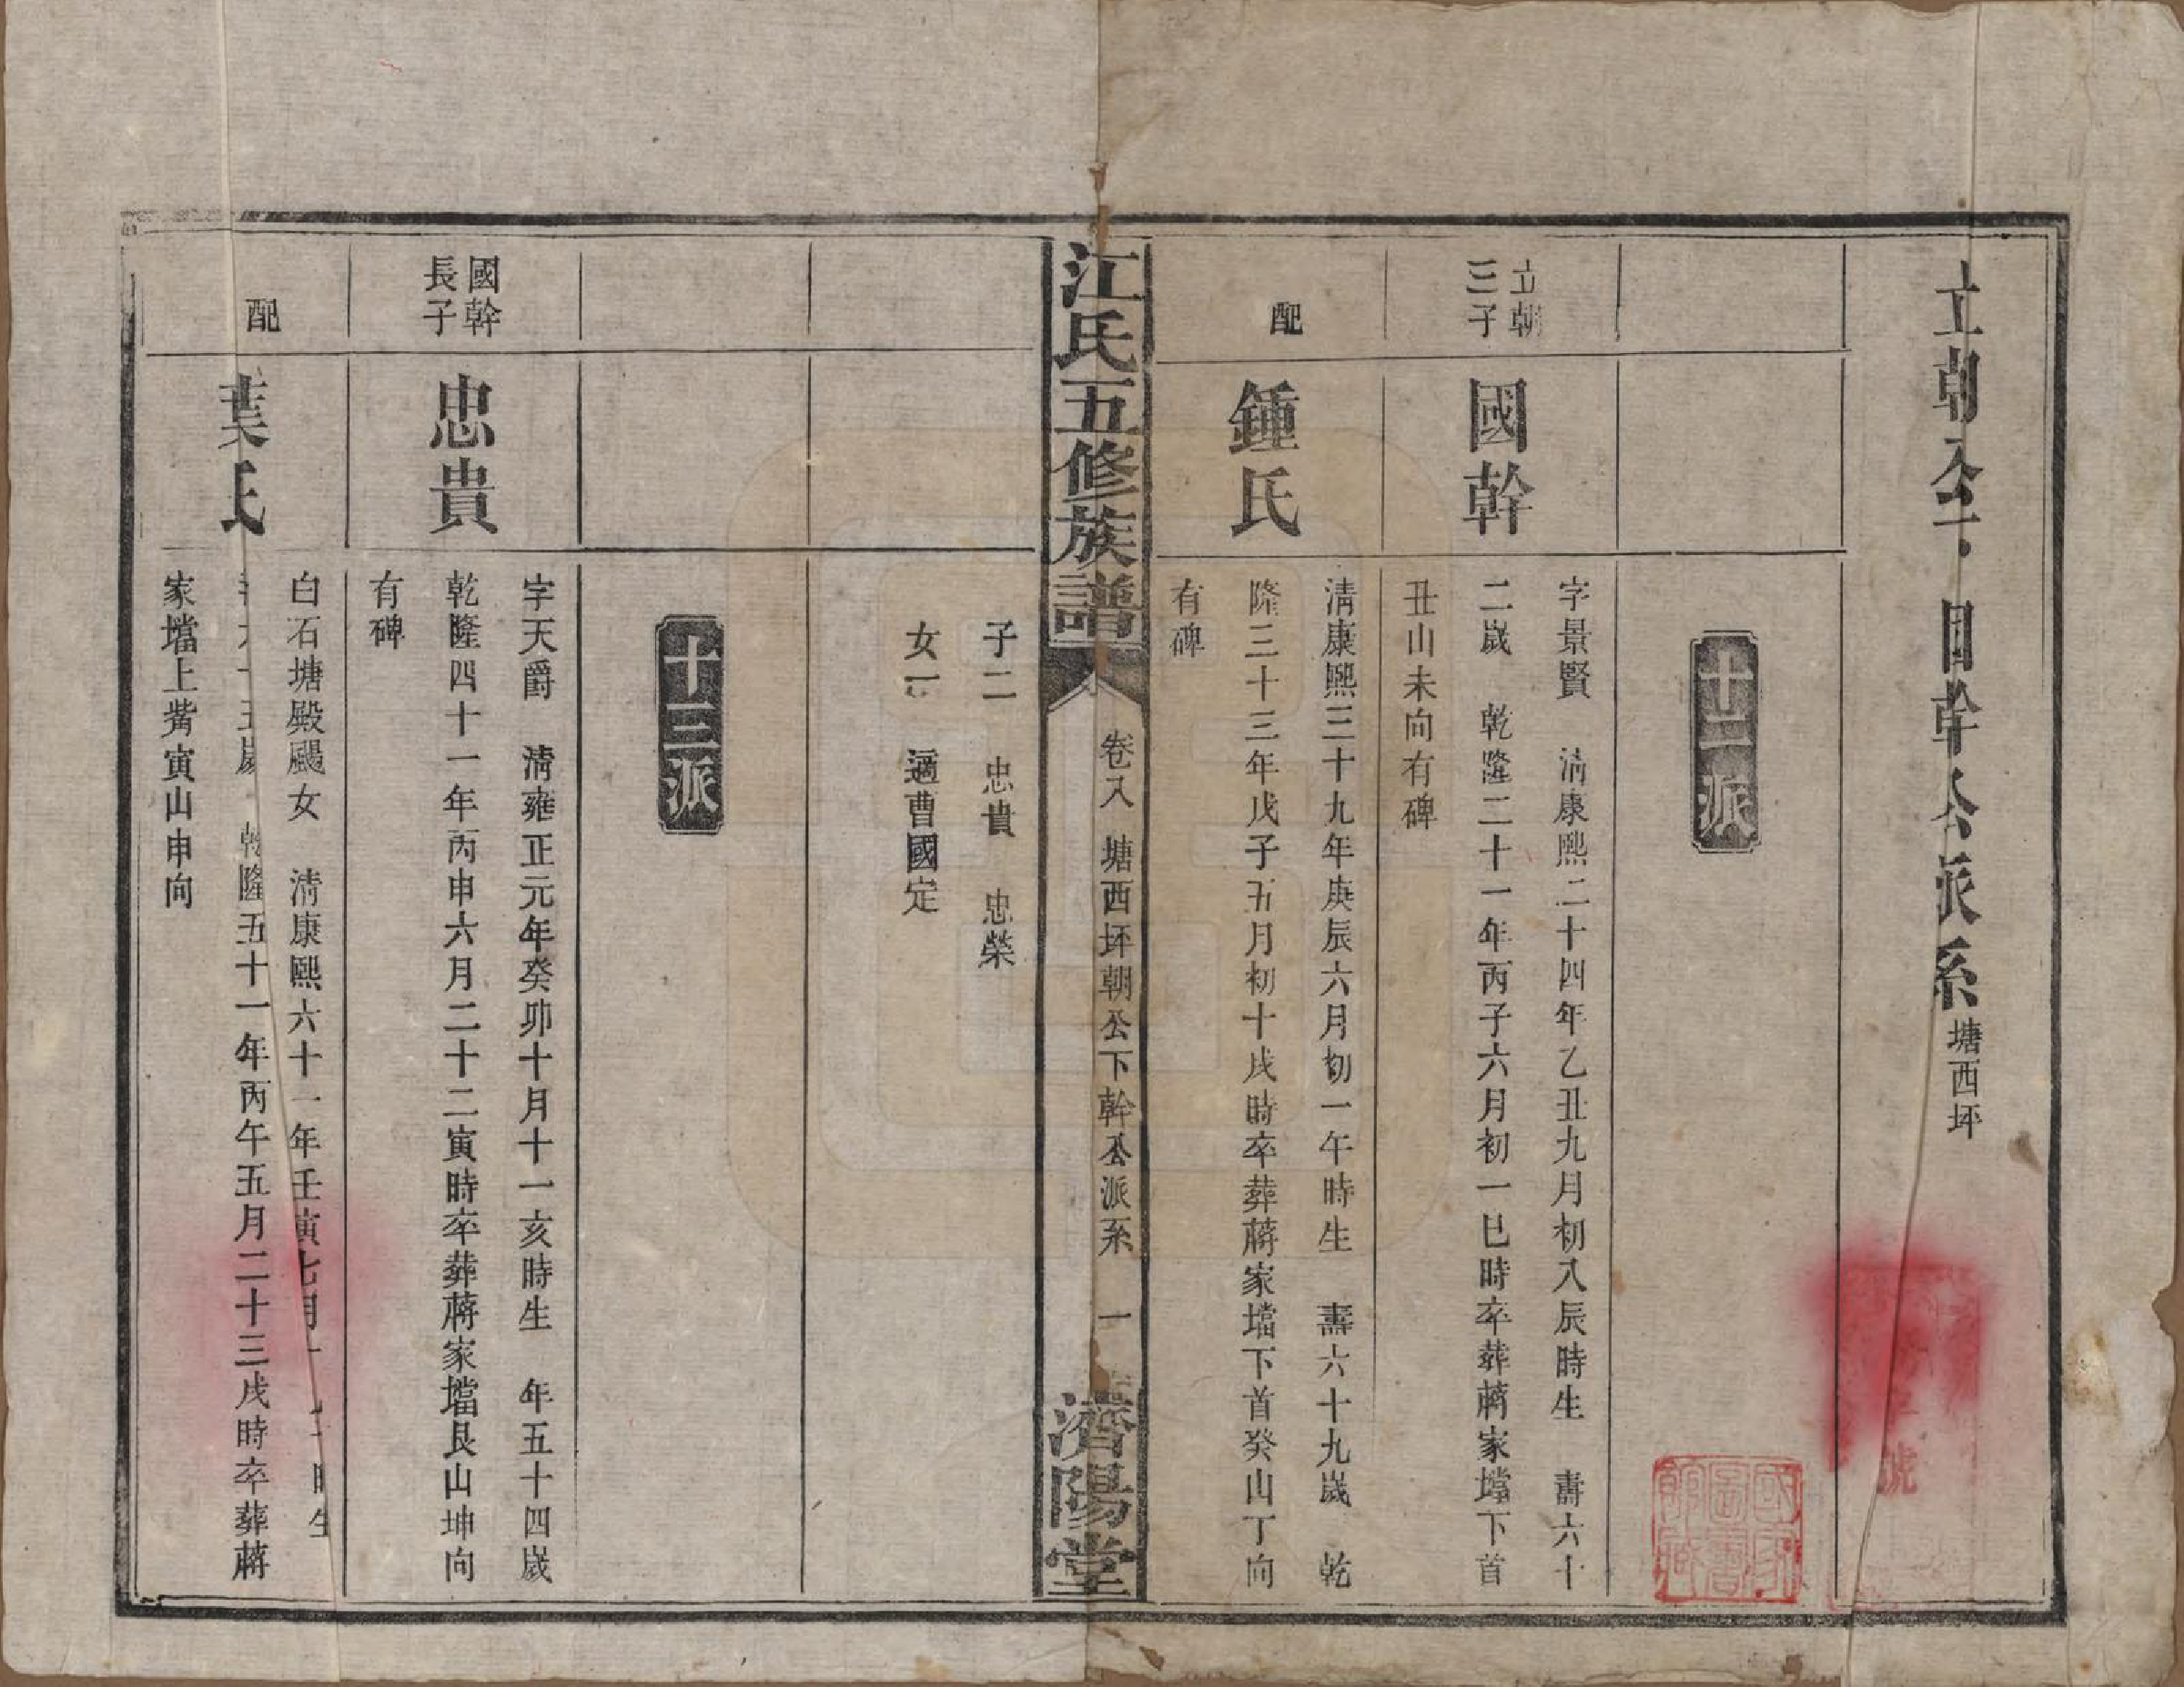 立朝公下國幹公派系塘西坪
十二派
立朝
三子
國幹
字景賢 清康熙二十四年乙丑九月初八辰時生 壽六十
二歲 乾隆二十一年丙子六月初一巳時卒葬蔣家壋下首
丑山未向有碑
配
鍾氏
清康熙三十九年庚辰六月初一午時生 壽六十九歲 乾
隆三十三年戊子五月初十戌時卒葬蔣家壋下首癸山丁向
有碑
江氏五修族譜
卷八 塘西坪朝公下幹公派系 一
濟陽堂
子二 忠貴 忠榮
女一 適曹國定
十三派
國幹
長子
忠貴
字天爵 清雍正元年癸卯十月十一亥時生 年五十四歲
乾隆四十一年丙申六月二十二寅時卒葬蔣家壋艮山坤向
有碑
配
葉氏
白石塘殿颺女 清康熙六十一年壬寅七月 時生
十五歲 乾隆五十一年丙午五月二十三戌時卒葬蔣
家壋上觜寅山申向
國家圖書館藏
號